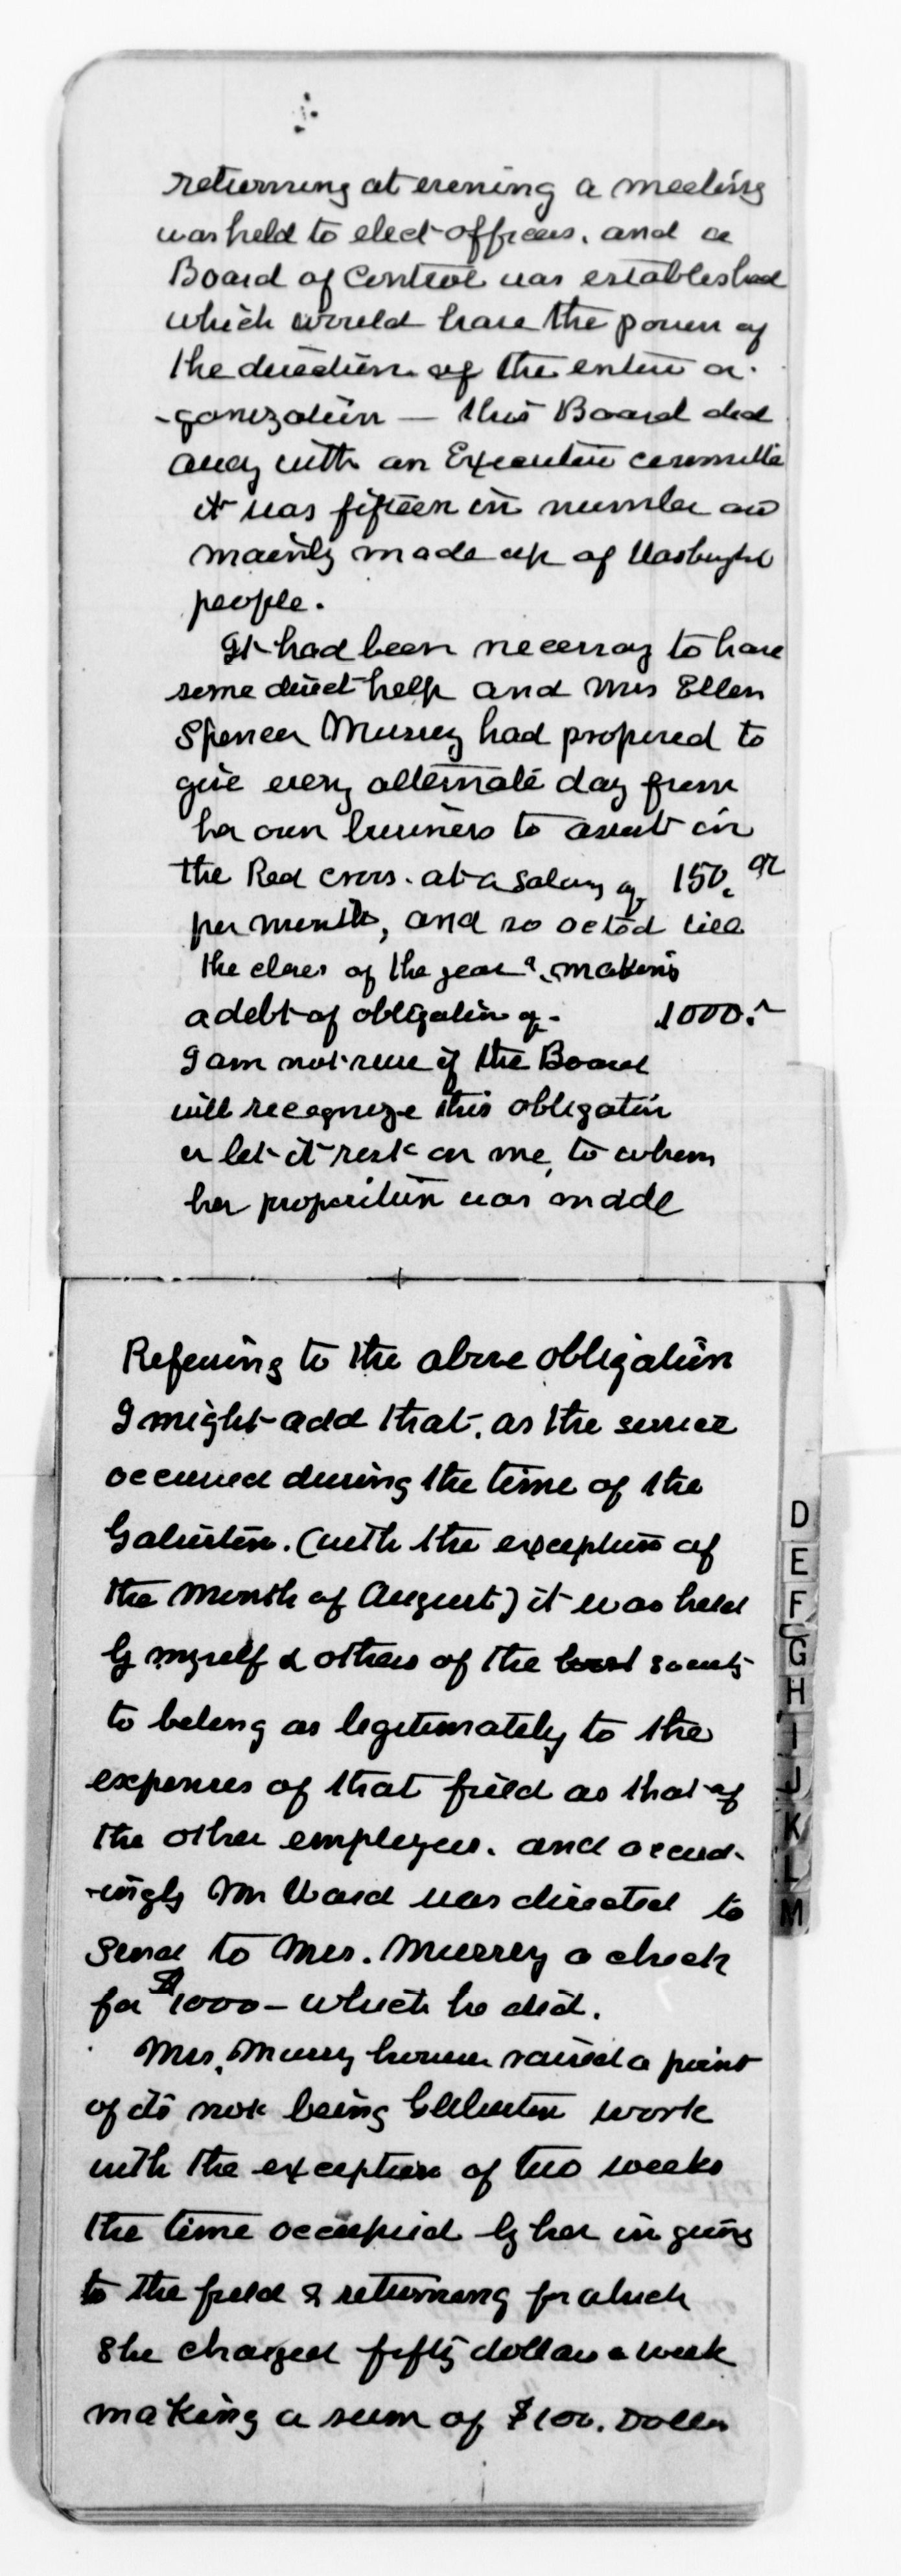 returning at evening a meeting
was held to elect officers. and a
Board of Control was established
which would have the power of
the direction of the entire or-
-ganization — this Board did
away with an Executive committee
it was fifteen in number and
mainly made up of Washington
people.
It had been necessary to have
some direct help and Mrs Ellen
Spencer Mussey had proposed to
give every alternate day from
her own business to assist in
the Red cross. at a salary of 150.
per month, and so acted till
the close of the year making
a debt of obligation of - 1000.
I am not sure if the Board
will recognize this obligation
or let it rest on me, to whom
her proposition was made
Referring to the above obligation
I might add that, as the service
occurred during the time of the
Galveston. (with the exception of
the month of August) it was held
by myself & others of the society
to belong as legitimately to the
expenses of that field as that of
the other employees. and accord-
-ingly Mr Ward was directed to
send to Mrs. Mussey a check
for $1000 - which he did.
Mrs. Mussey however raised a point
of its not being Galveston work
with the exception of two weeks
the time occupied by her in going
to the field & returning for which
She charged fifty dollars a week
making a sum of $100. Dollars
D
E
F
G
H
I
J
K
L
M